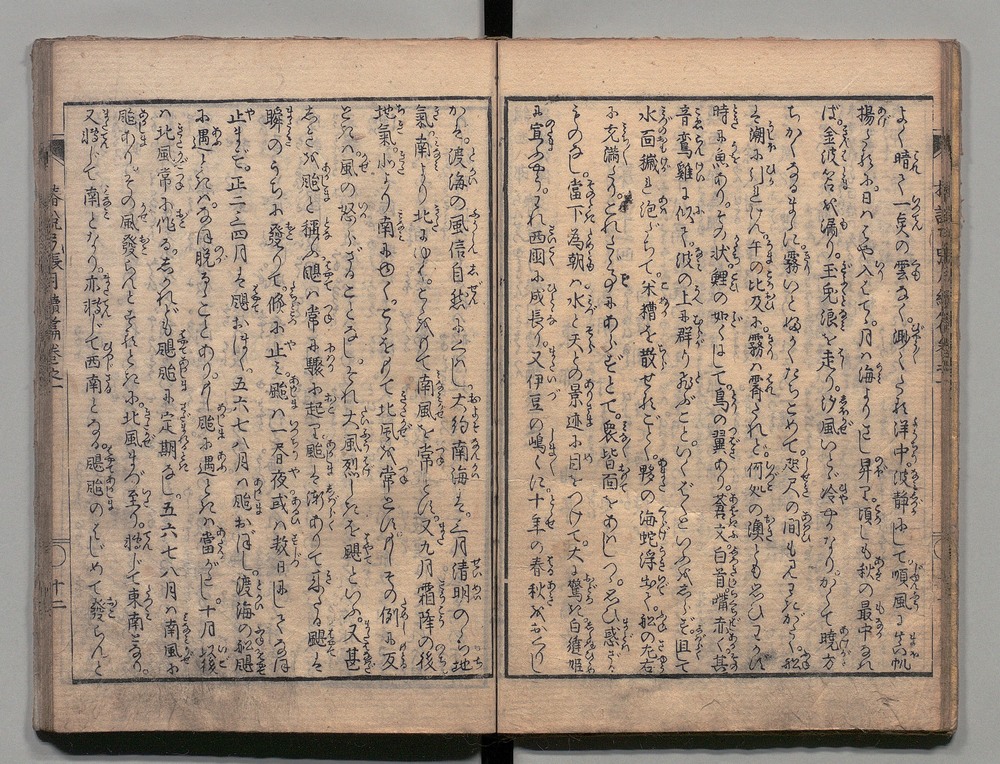 よく晴て一点の雲なく。渺々たる洋中波静にして順風に真帆
揚たれば。日ははや入はてゝ。月は海よりさし昇て。頃しも秋の最中なれ
ば。金波窓を漏り。玉兎浪を走り。沙風いとゞ冷やかなり。かくて暁方
ちかくなるまゝに。霧いとふかくたちこめて。咫尺の間も見えわかず。船
は潮に引れけん。午の比及に霧は霽たれど。何処の澳ともしらず
時に魚あり。その状鯉の如くにて鳥の翼あり。蒼文白首嘴赤く。其
音鸞雞に似て。波の上に群り飛ぶこと。いくばくといふをしらず。且て
水面穢れ泡だちて。米糟を散せるごとく。夥の海蛇浮出て。船の左右
に充満たり。これたゞ事にあらずとて。衆皆面をあはしつゝ。思ひ惑ざる
ものなし。當下為朝は。水と天との景迹に目をつけて。大に驚き。白縫姫
に宣ふやう。われ西國に成長り。又伊豆の嶋々に十年の春秋をおくりし
かば。渡海の風信自然にくはし。大約南海は。三月清明のゝち。地
氣南より北にゆく。こゝをもて南風を常とす。又九月霜降の後
地氣北より南にゆく。こゝをもて北風を常とす。もしその例に反
ときは風の怒らざることなし。それ大風烈しきを颶といふ。又甚
しきを颱と稱ふ。颶は常に驟に起り。颱は漸ありて来る。颶は
瞬のうちに發りて。倏に止。颱は一昼夜或は数日にしてなほ
止まず。正二三四月は颶おほく。五六七八月は颱おほし。渡海の船颶
に遇ときは。なほ脱るゝことあり。颱に遇ときは當がたし。十月以後
は北風常に作る。しかれども颶颱に定期なし。五六七八月は南風に
颱あり。その風發らんとするときに。北風まづ至り。轉じて東南となり。
又轉じて南となり。亦轉じて西南となる。颶颱のはじめて發らんと
椿説弓張月續篇巻之一
十二